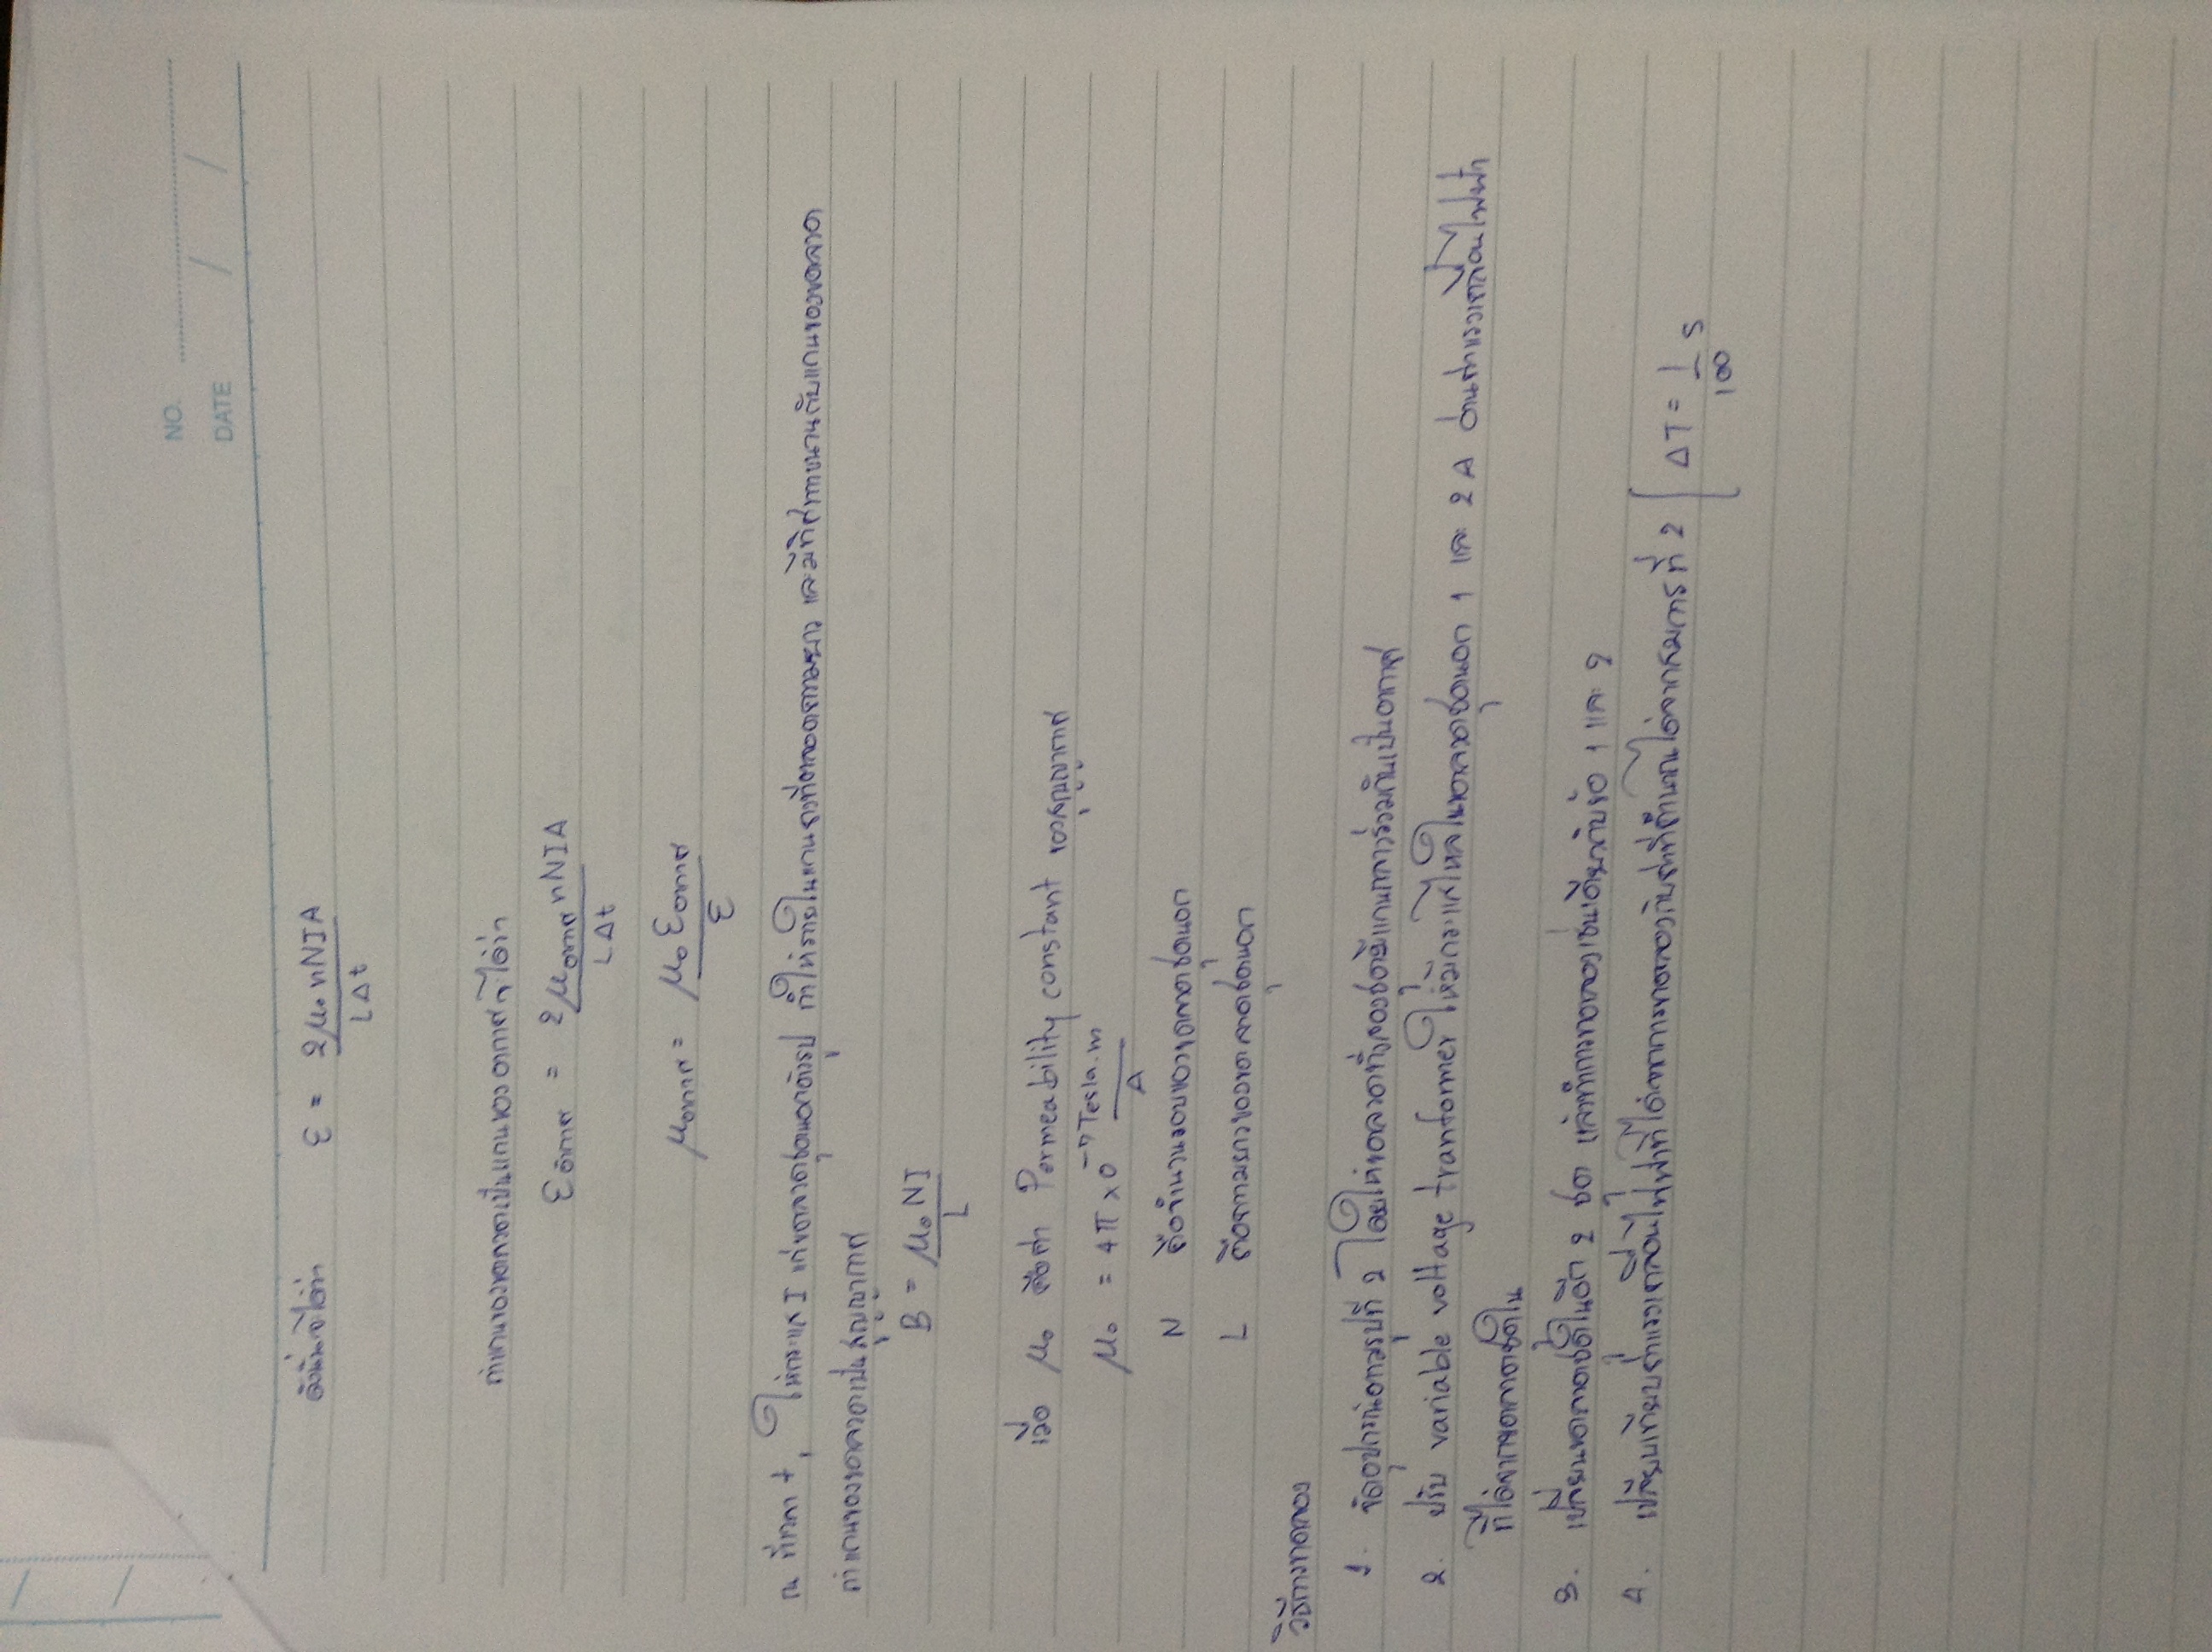 NO.
DATE / /
ดังนั้นจะได้ว่า ε = 2μ₀nNIA / LΔt
ถ้าแกนของขดลวดเป็นแกนของอากาศจะได้ว่า
εอากาศ = 2μอากาศnNIA / LΔt
μอากาศ = μ₀εอากาศ / ε
ณ ที่เวลา t, ให้กระแส I แก่ขดลวดชุดนอกดังรูป ทำให้ภายในแกนกลวงที่ตลอดความยาว และมีทิศทางขนานกับแกนของขดลวด
ถ้าแกนของขดลวดเป็นสุญญากาศ
B = μ₀NI / L
เมื่อ μ₀ คือค่า Permeability constant ของสุญญากาศ
μ₀ = 4π×0⁻⁷ Tesla.m / A
N คือจำนวนรอบของขดลวดชุดนอก
L คือความยาวของขดลวดชุดนอก
วิธีการทดลอง
1. จัดอุปกรณ์ตามรูปที่ 2 โดยให้ขดลวดทั้งสองชุดมีแกนร่วมกันเป็นอากาศ
2. ปรับ variable voltage tranformer ให้มีกระแสไหลในขดลวดชุดนอก 1 และ 2 A อ่านค่าแรงเคลื่อนไฟฟ้า
ที่ได้จากขดลวดชุดใน
3. เปลี่ยนขดลวดชุดในอีก 2 ชุด แล้วทำการทดลองเช่นเดียวกับข้อ 1 และ 2
4. เปรียบเทียบค่าแรงเคลื่อนไฟฟ้าที่ได้จากการทดลองกับค่าที่คำนวณได้จากสมการที่ 2 [ΔT = 1/100 s